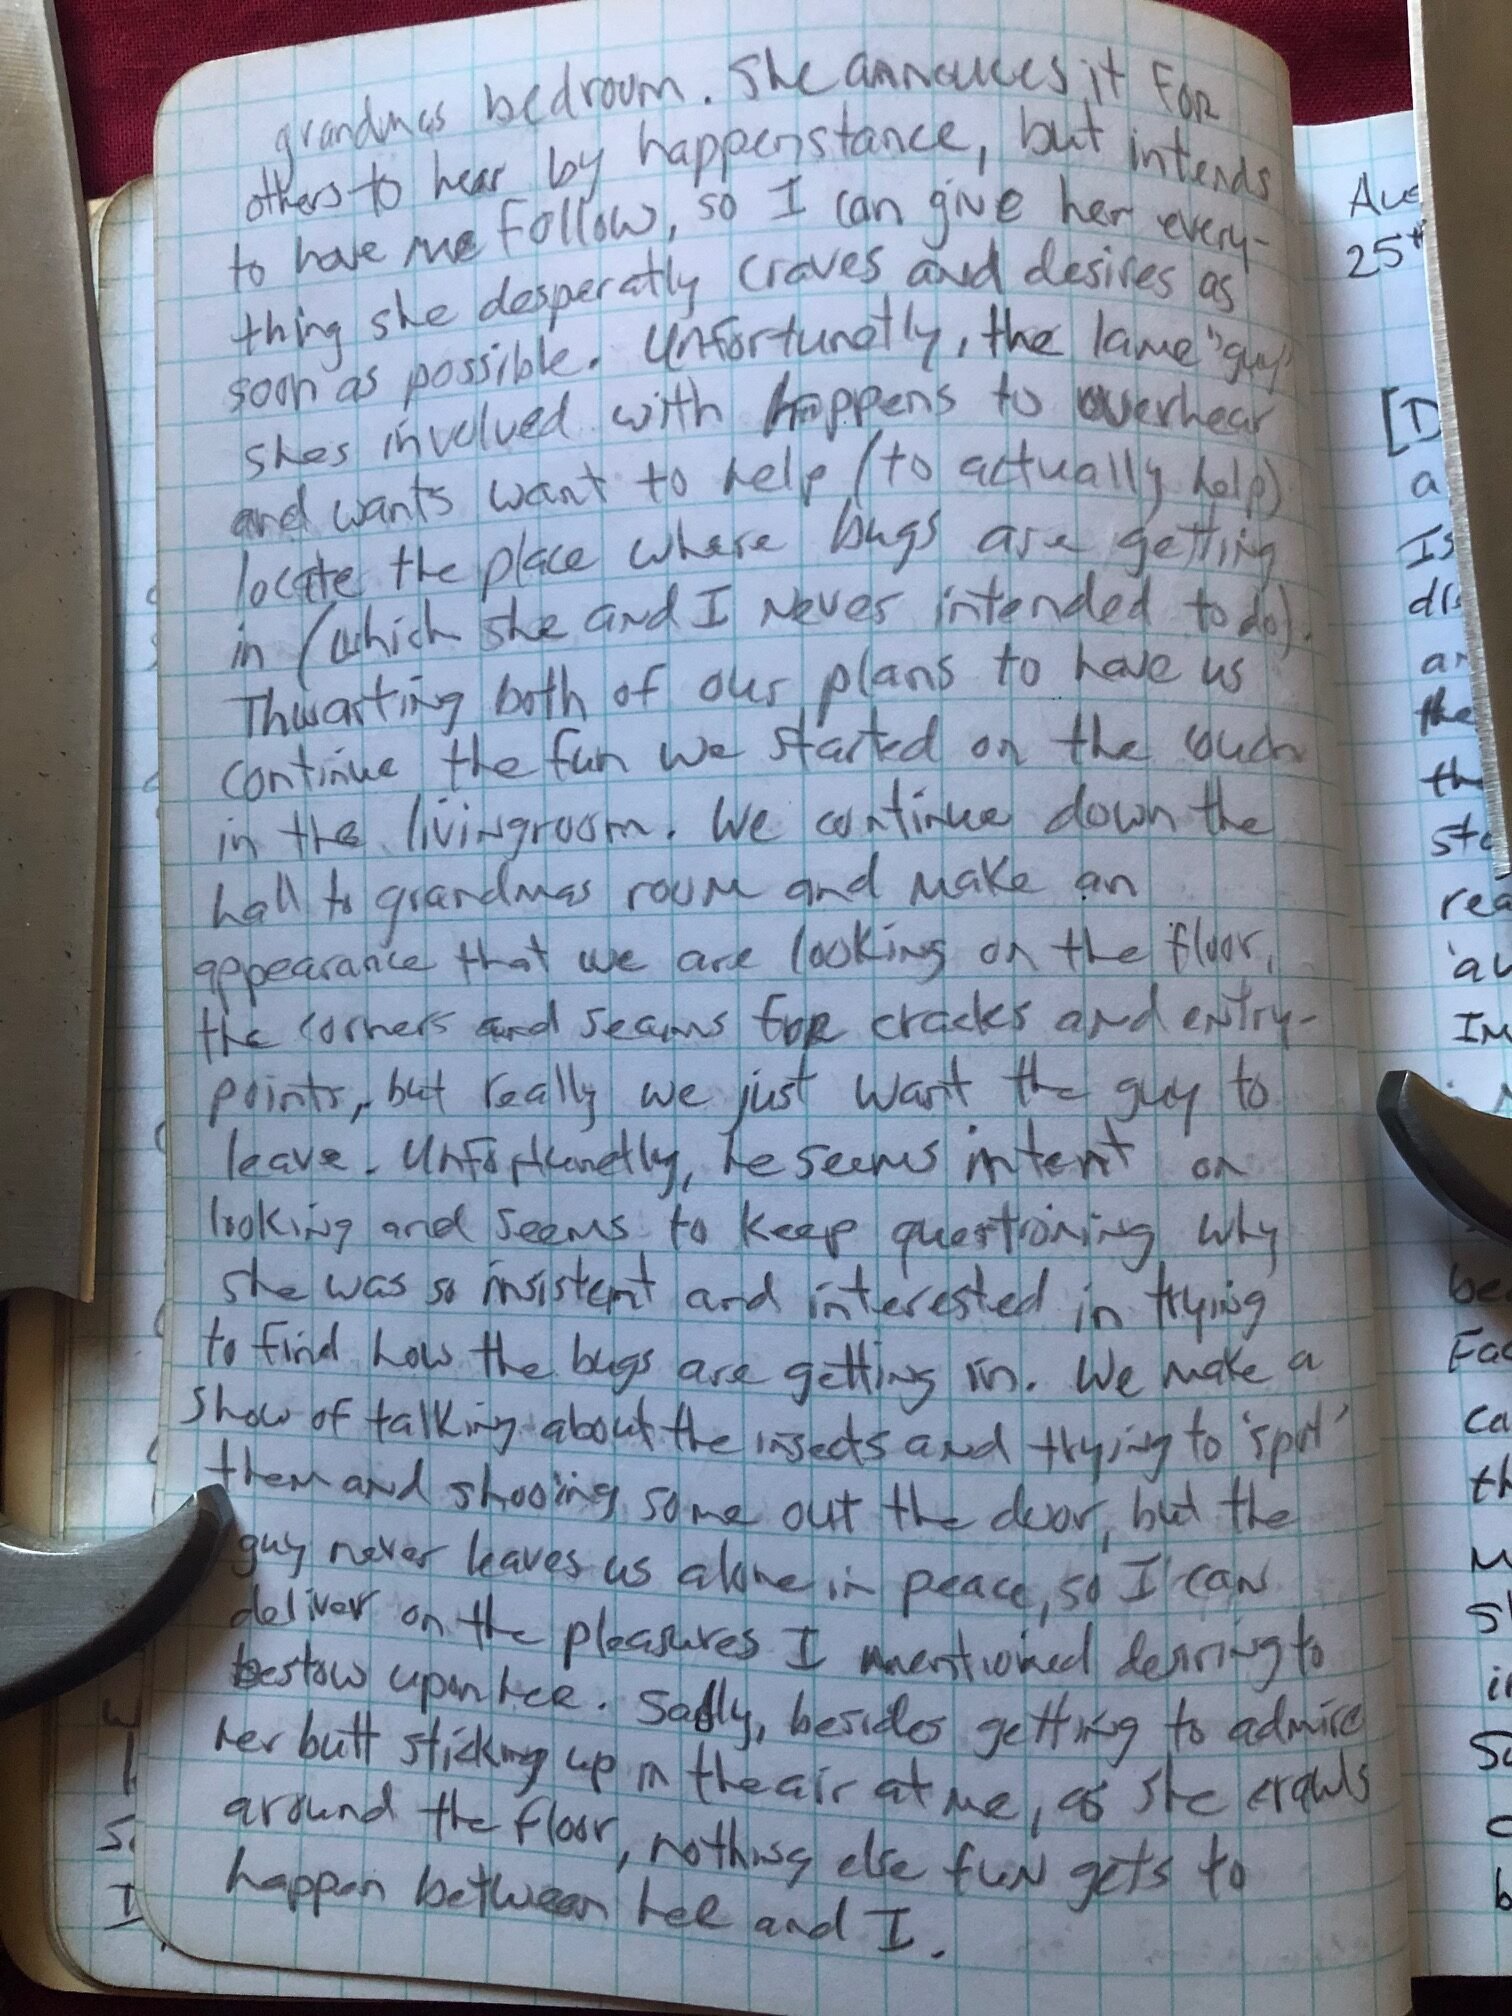 grandmas bedroom. She annouces it for
others to hear by happenstance, but intends
to have me follow, so I can give her every-
thing she desperatly craves and desires as
soon as possible. Unfortunetly, the lame "guy"
shes involved with happens to overhear
and wants want to help (to actually help)
locate the place where bugs are getting
in (which she and I never intended to do).
Thwarting both of our plans to have us
continue the fun we started on the couch
in the livingroom. We continue down the
hall to grandmas room and make an
appearance that we are looking on the floor,
the corners and seams for cracks and entry-
points, but really we just want the guy to
leave. Unfortunetly, he seems intent on
looking and seems to keep questioning why
she was so insistent and interested in trying
to find how the bugs are getting in. We make a
show of talking about the insects and trying to 'spot'
them and shooing some out the door, but the
guy never leaves us alone in peace, so I can
deliver on the pleasures I mentioned desiring to
bestow upon her. Sadly, besides getting to admire
her butt sticking up in the air at me, as she crawls
around the floor, nothing else fun gets to
happen between her and I.
25th
[D
a
Is
dis
an
the
th
sta
rea
Im
be
Fac
ca
th